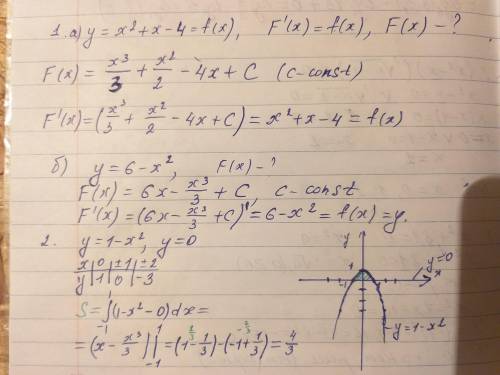 1. a) y = x² + x - 4 = f(x), F'(x) = f(x), F(x) - ?
F(x) = x³/3 + x²/2 - 4x + C (c-const)
F'(x) = (x³/3 + x²/2 - 4x + C)' = x² + x - 4 = f(x)
б) y = 6 - x², F(x) - ?
F(x) = 6x - x³/3 + C, c-const
F'(x) = (6x - x³/3 + C)' = 6 - x² = f(x) = y.
2. y = 1 - x², y = 0
x | 0 | ±1 | ±2
y | 1 | 0 | -3
S = ∫₋₁¹ (1 - x² - 0) dx =
= (x - x³/3) |₋₁¹ = (1 - 1/3) - (-1 + 1/3) = 4/3
2/3
-2/3
y
1
-1
1
x
y=0
y = 1 - x²